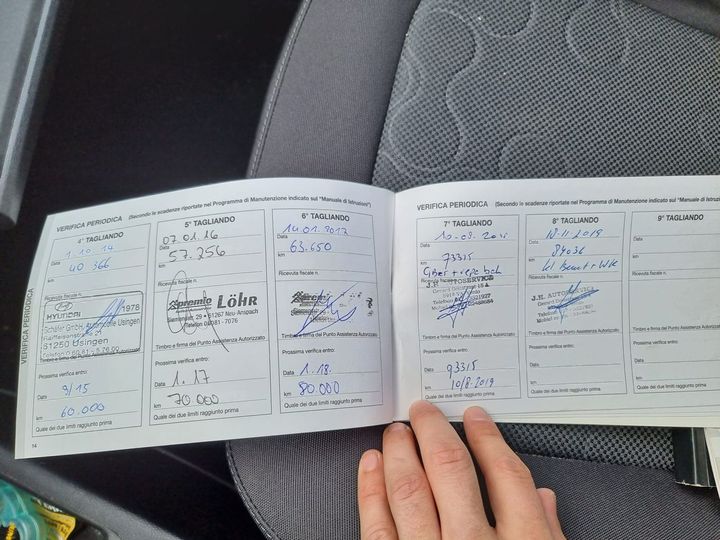 VERIFICA PERIODICA (Secondo le scadenze riportate nel Programma di Manutenzione indicato sul "Manuale di Istruzioni")
4° TAGLIANDO
1.10.14
Data
40 366
km
Ricevuta fiscale n.
HYUNDAI
1978
Schäfer GmbH, Automobile Usingen
61250 Usingen
Timbro e firma del Punto Assistenza Autorizzato
Prossima verifica entro:
Data
9/15
km
60.000
Quale dei due limiti raggiunto prima
14
5° TAGLIANDO
07.01.16
Data
57.256
km
Ricevuta fiscale n.
premio Löhr
Siemensstr. 29 • 61267 Neu-Anspach
06081 - 7076
Timbro e firma del Punto Assistenza Autorizzato
Prossima verifica entro:
Data
1.17
km
70 000
Quale dei due limiti raggiunto prima
6° TAGLIANDO
14.01.2017
Data
63.650
km
Ricevuta fiscale n.
premio
Timbro e firma del Punto Assistenza Autorizzato
Prossima verifica entro:
Data
1.18.
km
80 000
Quale dei due limiti raggiunto prima
VERIFICA PERIODICA
VERIFICA PERIODICA (Secondo le scadenze riportate nel Programma di Manutenzione indicato sul "Manuale di Istruzioni
7° TAGLIANDO
Data
73315
km
Timbro e firma del Punto Assistenza Autorizzato
Prossima verifica entro:
93315
Data
10/8.2019
km
Quale dei due limiti raggiunto prima
8° TAGLIANDO
18.11.2019
Data
84036
km
Kl beurt + WK
Ricevuta fiscale n.
J.H. AUTOSERVICE
Timbro e firma del Punto Assistenza Autorizzato
Prossima verifica entro:
Data
km
Quale dei due limiti raggiunto prima
9° TAGLIANDO
Data
km
Ricevuta fiscale n.
Timbro e firma del Punto Assistenza
Prossima verifica entro:
Data
km
Quale dei due limiti raggiunto prima